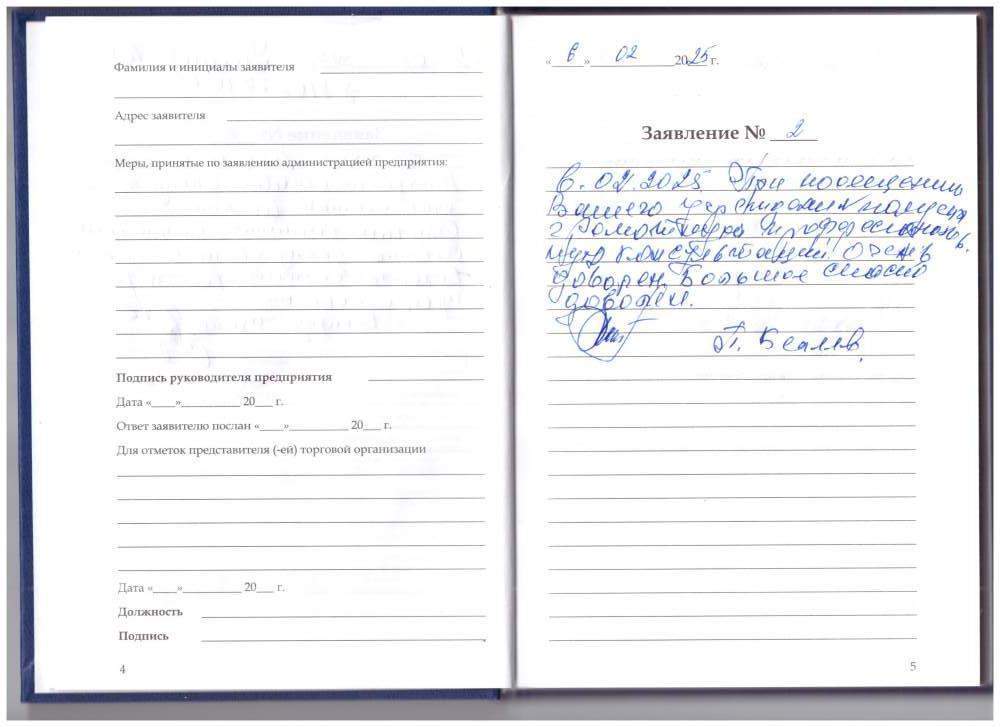 Фамилия и инициалы заявителя
Адрес заявителя
Меры, принятые по заявлению администрацией предприятия:
Подпись руководителя предприятия
Дата «____»__________ 20___ г.
Ответ заявителю послан «____»__________ 20___ г.
Для отметок представителя (-ей) торговой организации
Дата «____»__________ 20___ г.
Должность
Подпись
4
«6» 02 2025 г.
Заявление № 2
6.02.2025 При посещении
Вашего
г.
Очень
доволен Большое спасибо
доволен.
П.
5